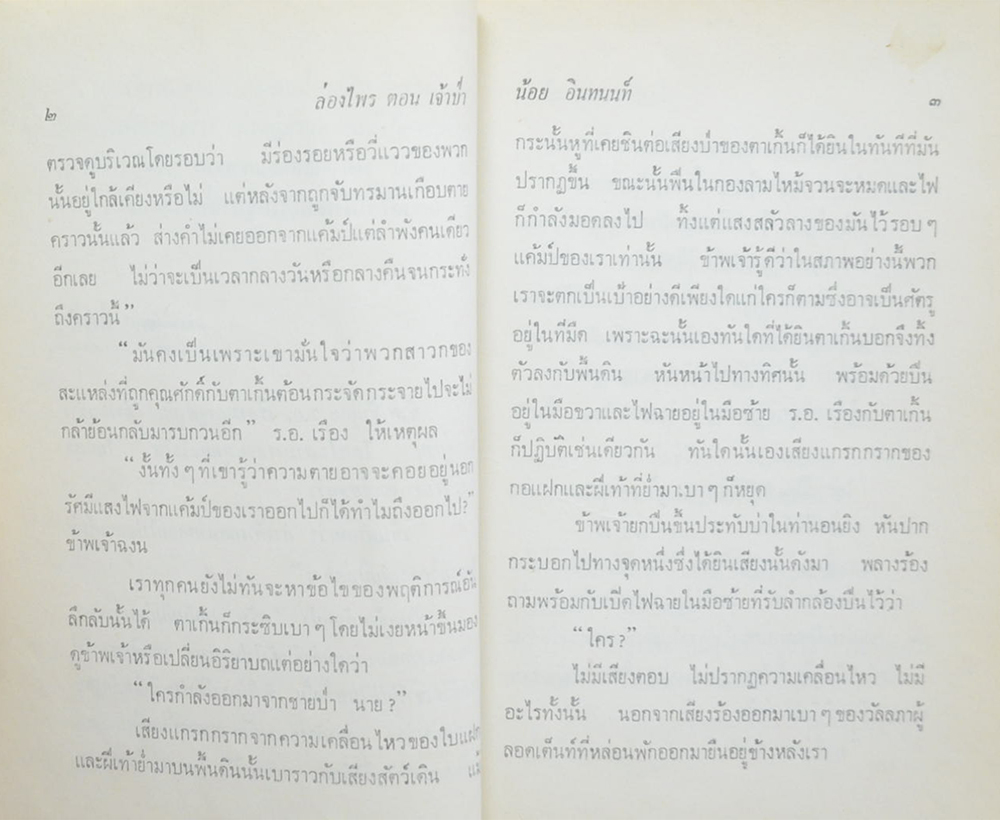 ๒
ล่องไพร ตอน เจ้าป่า
ตรวจดูบริเวณโดยรอบว่า มีร่องรอยหรือวี่แววของพวก
นั้นอยู่ใกล้เคียงหรือไม่ แต่หลังจากถูกจับทรมานเกือบตาย
คราวนั้นแล้ว ส่างคำไม่เคยออกจากแค้มป์แต่ลำพังคนเดียว
อีกเลย ไม่ว่าจะเป็นเวลากลางวันหรือกลางคืนจนกระทั่ง
ถึงคราวนี้”
“มันคงเป็นเพราะเขามั่นใจว่าพวกสาวกของ
สะแหล่งที่ถูกคุณศักดิ์กับตาเกิ้นต้อนกระจัดกระจายไปจะไม่
กล้าย้อนกลับมารบกวนอีก” ร.อ. เรือง ให้เหตุผล
“งั้นทั้ง ๆ ที่เขารู้ว่าความตายอาจจะคอยอยู่นอก
รัศมีแสงไฟจากแค้มป์ของเราออกไปก็ได้ทำไมถึงออกไป?”
ข้าพเจ้าฉงน
เราทุกคนยังไม่ทันจะหาข้อไขของพฤติการณ์อัน
ลึกลับนั้นได้ ตาเกิ้นก็กระซิบเบา ๆ โดยไม่เงยหน้าขึ้นมอง
ดูข้าพเจ้าหรือเปลี่ยนอิริยาบถแต่อย่างใดว่า
“ใครกำลังออกมาจากชายป่า นาย?”
เสียงแกรกกรากจากความเคลื่อนไหวของใบแฝก
และฝีเท้าย่ำมาบนพื้นดินนั้นเบาราวกับเสียงสัตว์เดิน แม้
น้อย อินทนนท์
๓
กระนั้นหูที่เคยชินต่อเสียงป่าของตาเกิ้นก็ได้ยินในทันทีที่มัน
ปรากฏขึ้น ขณะนั้นฟืนในกองลามไหม้จวนจะหมดและไฟ
ก็กำลังมอดลงไป ทิ้งแต่แสงสลัวลางของมันไว้รอบ ๆ
แค้มป์ของเราเท่านั้น ข้าพเจ้ารู้ดีว่าในสภาพอย่างนี้พวก
เราจะตกเป็นเป้าอย่างดีเพียงใดแก่ใครก็ตามซึ่งอาจเป็นศัตรู
อยู่ในที่มืด เพราะฉะนั้นเองทันใดที่ได้ยินตาเกิ้นบอกจึงทิ้ง
ตัวลงกับพื้นดิน หันหน้าไปทางทิศนั้น พร้อมด้วยปืน
อยู่ในมือขวาและไฟฉายอยู่ในมือซ้าย ร.อ. เรืองกับตาเกิ้น
ก็ปฏิบัติเช่นเดียวกัน ทันใดนั้นเองเสียงแกรกกรากของ
กอแฝกและฝีเท้าที่ย่ำมา.เบา ๆ ก็หยุด
ข้าพเจ้ายกปืนขึ้นประทับบ่าในท่านอนยิง หันปาก
กระบอกไปทางจุดหนึ่งซึ่งได้ยินเสียงนั้นดังมา พลางร้อง
ถามพร้อมกับเปิดไฟฉายในมือซ้ายที่รับลำกล้องปืนไว้ว่า
“ใคร?”
ไม่มีเสียงตอบ ไม่ปรากฏความเคลื่อนไหว ไม่มี
อะไรทั้งนั้น นอกจากเสียงร้องออกมาเบา ๆ ของวัลลภาผู้
ลอดเต็นท์ที่หล่อนพักออกมายืนอยู่ข้างหลังเรา